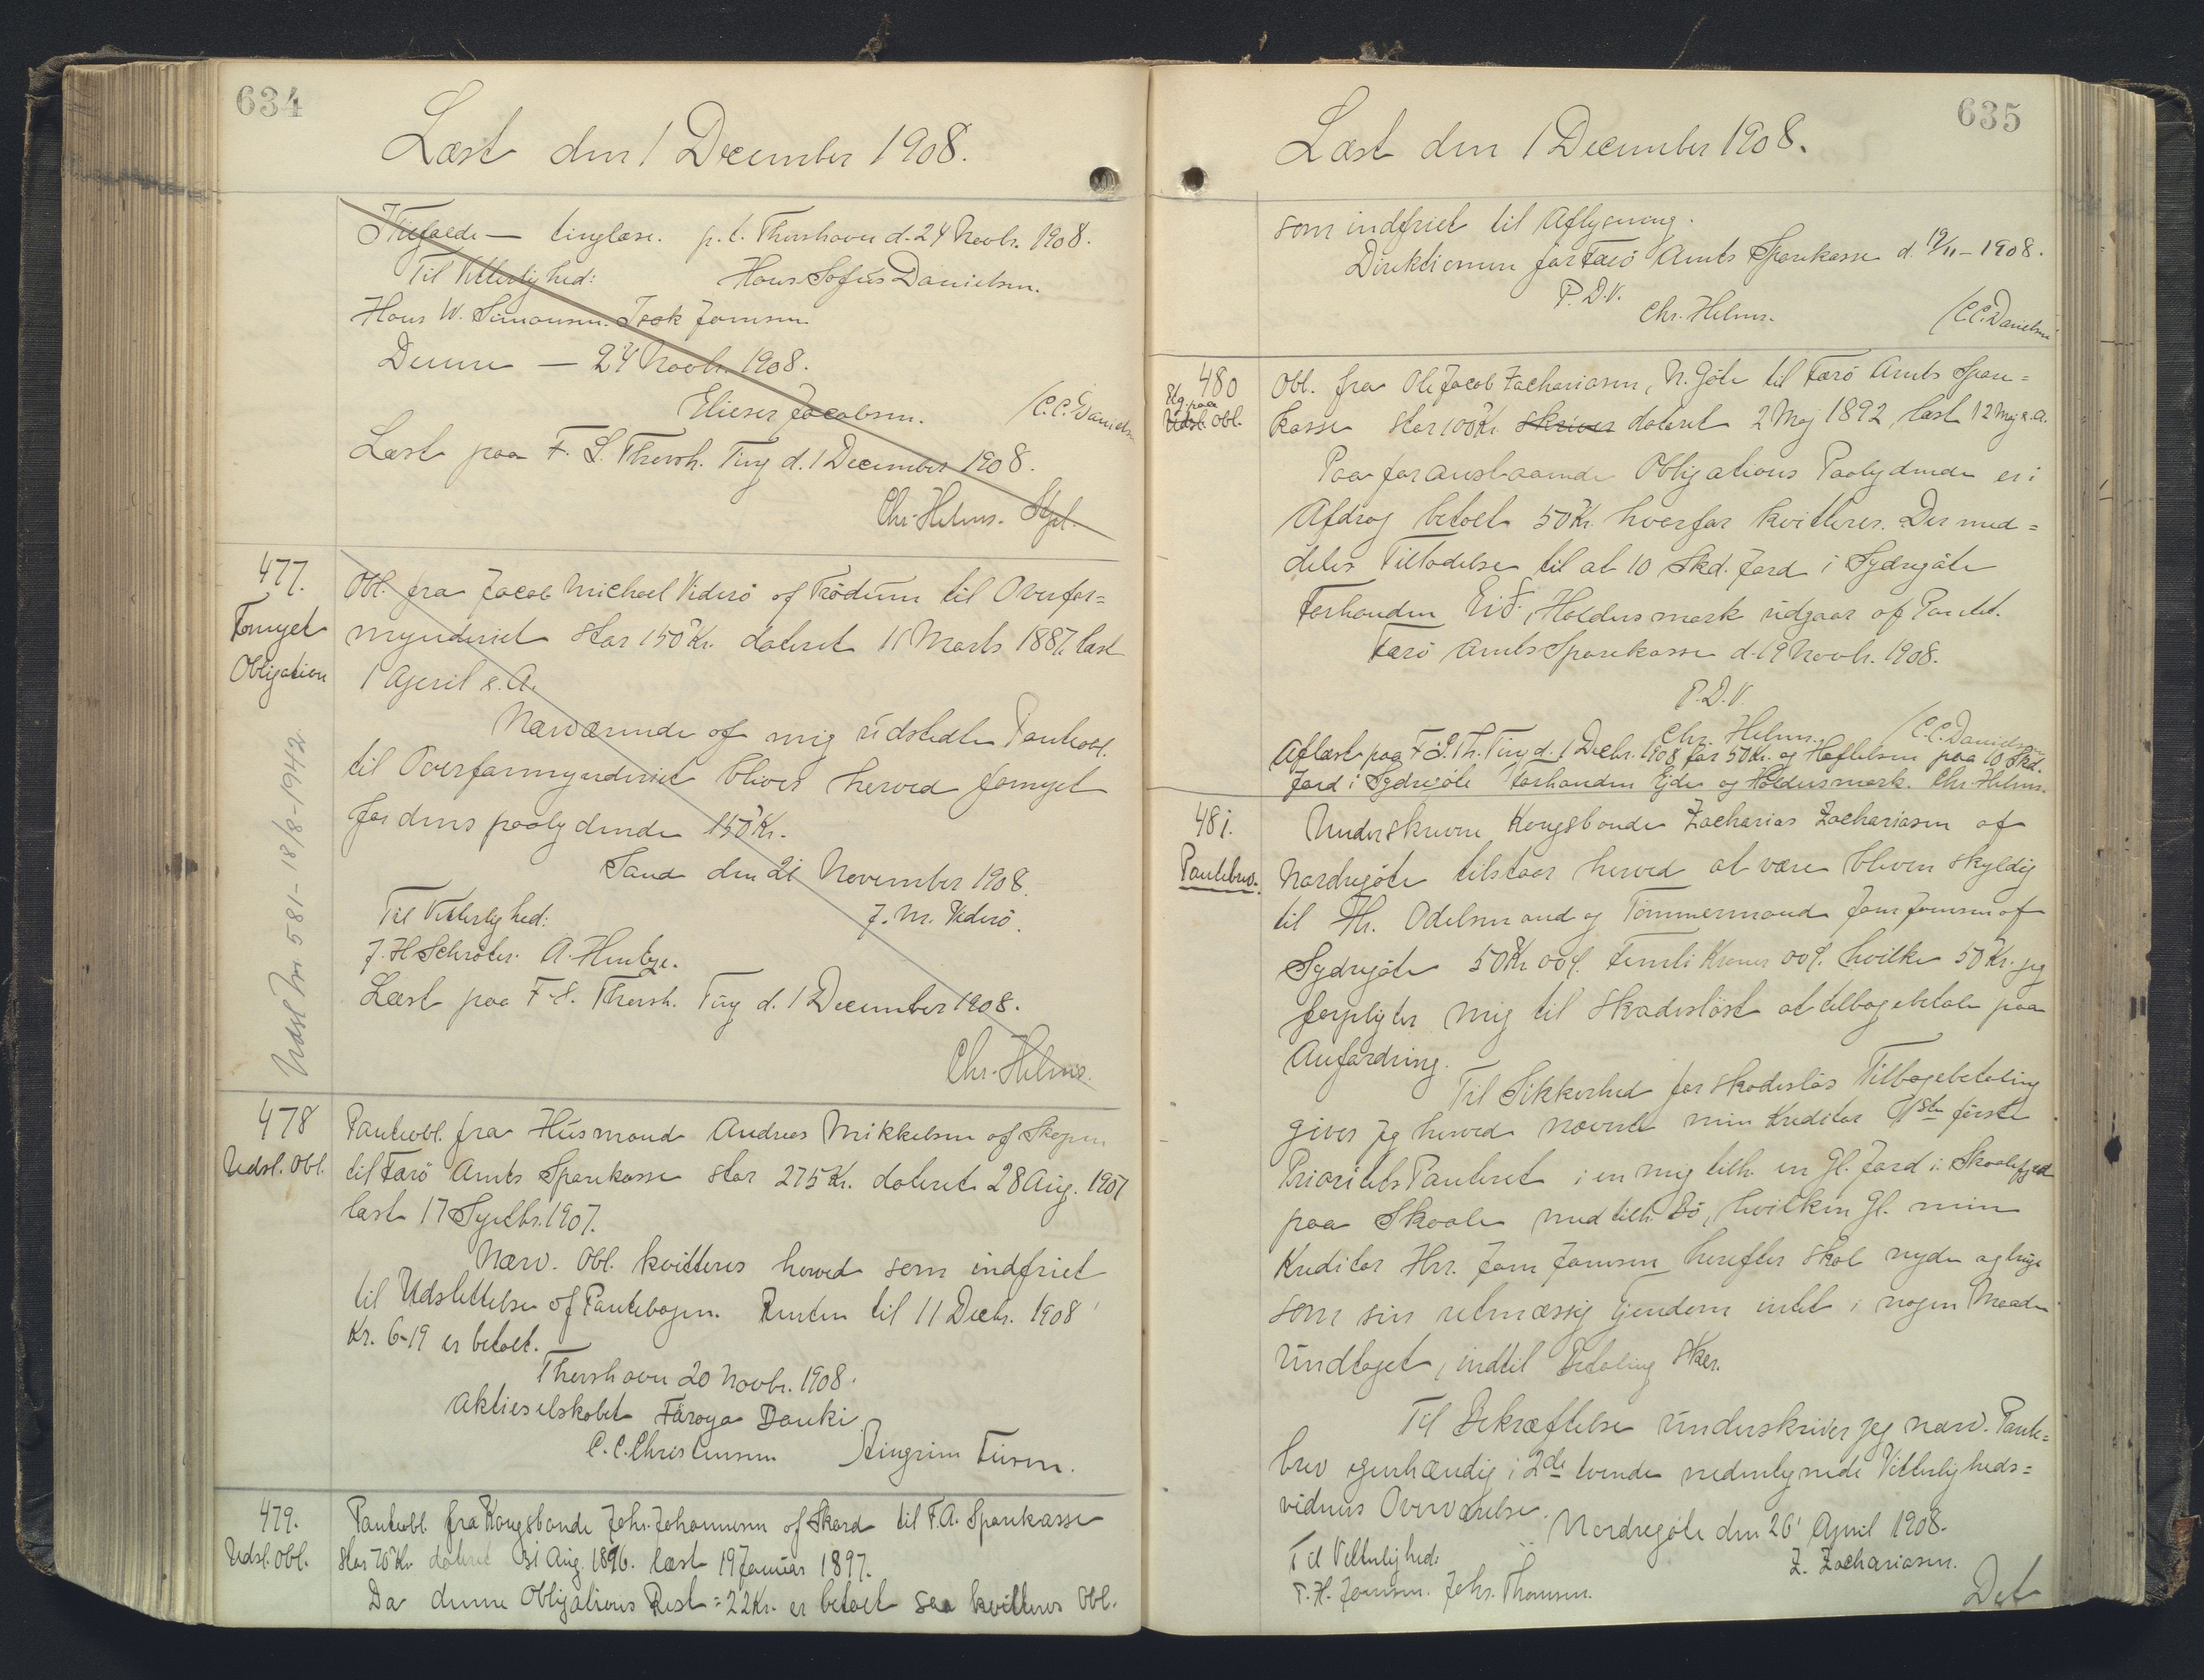 634
Læst den 1 December 1908.
Ihiefalde — tinglæse. p.t. Thorshavn d. 24 Novbr. 1908.
Til Vitterlighed: Hans Sofus Danielsen.
Hans W. Simonsen. Isak Joensen
Denne — 24 Novbr. 1908.
Elieser Jacobsen. /C.C. Danielsen
Læst paa F. S. Thorsh. Ting d. 1 December 1908.
Chr. Helms. Kpt.
477.
Fornyet
Obligation
Obl. fra Jacob Michael Viderö af Trödum til Overfor=
mynderiet stor 150 Kr. dateret 11 Marts 1887, læst
1 April s. A.
Nærværende af mig udstedte Panteobl.
til Overformynderiet bliver herved fornyet
for dens paalydende 150 Kr.
Sand den 21 November 1908.
Til Vitterlighed: J. M. Viderö.
J. H. Schröter. A. Hentze.
Læst paa F. S. Thorsh. Ting d. 1 December 1908.
Chr. Helms.
Udsl. No 581 - 18/8 - 1942.
478
Udsl. Obl.
Panteobl. fra Husmand Andreas Mikkelsen af Skopen
til Færö Amts Sparekasse stor 275 Kr. dateret 28 Aug. 1907
læst 17 Septbr. 1907.
Nærv. Obl. kvitteres herved som indfriet
til Udslettelse af Pantebogen. Renten til 11 Decbr. 1908
Kr. 6-19 er betalt.
Thorshavn 20 Novbr. 1908.
Aktieselskabet Färoya Banki
C. C. Christensen
479.
Udsl. Obl.
Panteobl. fra Kongsbonde Johs. Johannesen af Skard til F. A. Sparekasse
stor 70 Kr. dateret 31 Aug. 1896. læst 19 Januar 1897.
Da denne Obligations Rest = 22 Kr. er betalt saa kvitteres Obl.
635
Læst den 1 December 1908.
som indfriet til Aflysning.
Direktionen for Færö Amts Sparekasse d. 19/11 - 1908.
P. D. V.
Chr. Helms. /C.C. Danielsen
480
Udsl. Obl.
Obl. fra Ole Jacob Zachariasen, N. Göte til Færö Amts Spare=
kasse stor 100 Kr. skriver dateret 2 Maj 1892, læst 12 Maj s. A.
Paa foranstaaende Obligations Paalydende er i
Afdrag betalt 50 Kr. hvorfor kvitteres. Der med=
deles Tilladelse til at 10 Skd. Jord i Sydregöte
Forhenden Eid. Holdersmark udgaar af Pantet.
Færö Amts Sparekasse d. 19 Novbr. 1908.
P. D. V.
Chr. Helms. /C.C. Danielsen
Aflæst paa F. S. Th. Ting d. 1 Decbr. 1908 for 50 Kr. og Hæftelsen paa 10 Skd.
Jord i Sydregöte Forhenden Ejde og Holdersmark. Chr. Helms.
481.
Pantebrev.
Underskrevne Kongsbonde Zacharias Zachariasen af
Nordregöte tilstaar herved at være bleven skyldig
til Hr. Odelsmand og Tömmermand Joen Joensen af
Sydregöte 50 Kr. 00 Ø. Femti Kroner 00 Ø. hvilke 50 Kr. jeg
forpligter mig til skadeslöst at tilbagebetale paa
Anfordring.
Til Sikkerhed for skadeslös Tilbagebetaling
giver jeg herved nævnte min Kreditor 1ste förste
Prioritets Panteret i en mig tilh. en Gl. Jord i Skaalefjord
paa Skaale med tilh. Bö, hvilken Gl. min
Kreditor Hrr. Joen Joensen herefter skal nyde og bruge
som sin retmæssig Ejendom intet i nogen Maade
undtaget, indtil Betaling sker.
Til Bekræftelse underskriver jeg nærv. Pante=
brev egenhændig i 2de tvende nedentegnede Vitterligheds=
vidners Overværelse.
Nordregöte den 26' April 1908.
Til Vitterlighed: Z. Zachariasen.
F. H. Joensen. Johs. Thomsen.
Det